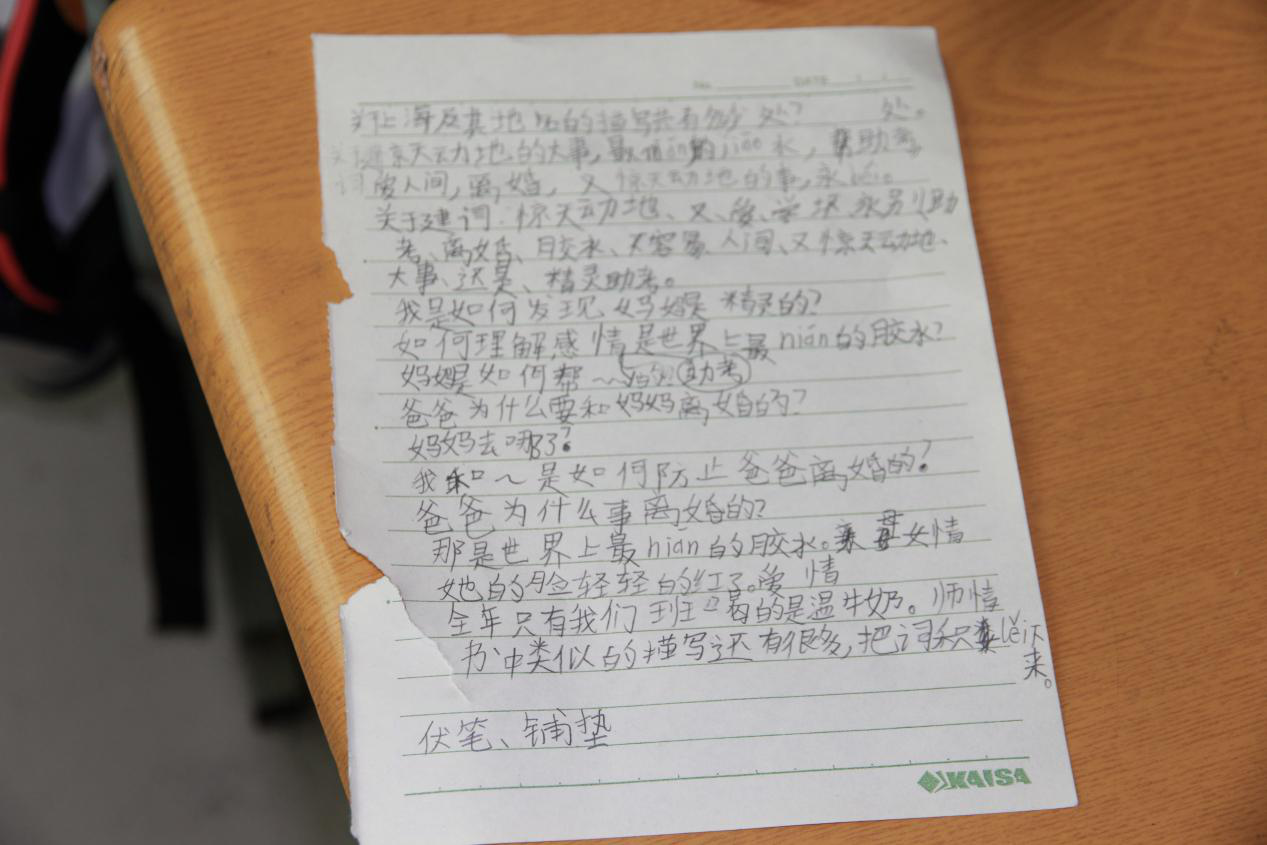 No. DATE / /
海 地 的描写共有 处? 处。
惊天动地的大事,最 的jiāo水, 助考
爱人间,离婚,又惊天动地的事,永bié。
关于建词:惊天动地、又、爱、学坏、永另刂助
考、离婚、胶水、不容易、人间、又惊天动地、
大事、还是、精灵助考。
我是如何发现妈妈是精灵的?
如何理解感情是世界上最nián的胶水?
妈妈是如何帮~~ 助考
爸爸为什么要和妈妈离婚的?
妈妈去哪了?
我和~是如何防止爸爸离婚的?
爸爸为什么事离婚的?
那是世界上最nián的胶水。 母女情
她的脸轻轻的红了。爱情
全年只有我们班 的是温牛奶。师情
书中类似的描写还有很多,把词 lěi下
来。
伏笔、铺垫
KAISA